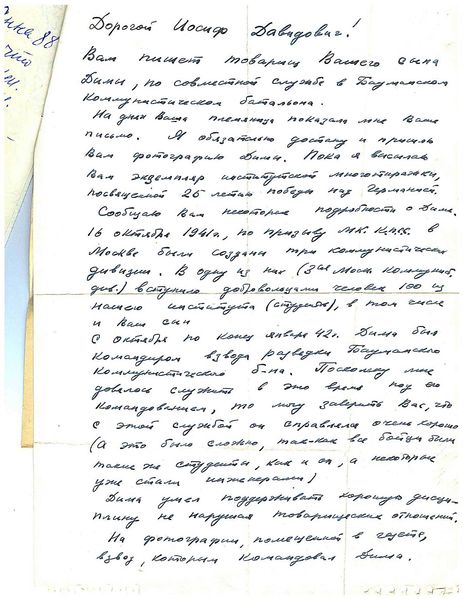 нка 88
что
Дорогой Иосиф Давидович!
Вам пишет товарищ Вашего сына
Димы, по совместной службе в Бауманском
Коммунистическом батальоне.
На днях Ваша племянница показала мне Ваше
письмо. Я обязательно достану и пришлю
Вам фотографию Димы. Пока я высылаю
Вам экземпляр институтской многотиражки,
посвященной 25 летию победы над Германией.
Сообщаю Вам некоторые подробности о Диме.
16 октября 1941г., по призыву МК. КПСС. в
Москве были созданы три коммунистические
дивизии. В одну из них (3ая Моск. Коммунист.
див.) вступило добровольцами человек 100 из
нашего института (студенты), в том числе
и Ваш сын
С октября по конец января 42г. Дима был
командиром взвода разведки Бауманского
Коммунистического б-на. Поскольку мне
довелось служить в это время под его
командованием, то могу заверить Вас, что
с этой службой он справлялся очень хорошо
(а это было сложно, так-как все бойцы были
такие же студенты, как и он, а некоторые
уже стали инженерами)
Дима умел поддерживать хорошую дисци-
плину не нарушая товарищеских отношений.
На фотографии, помещенной в газете,
взвод, которым командовал Дима.